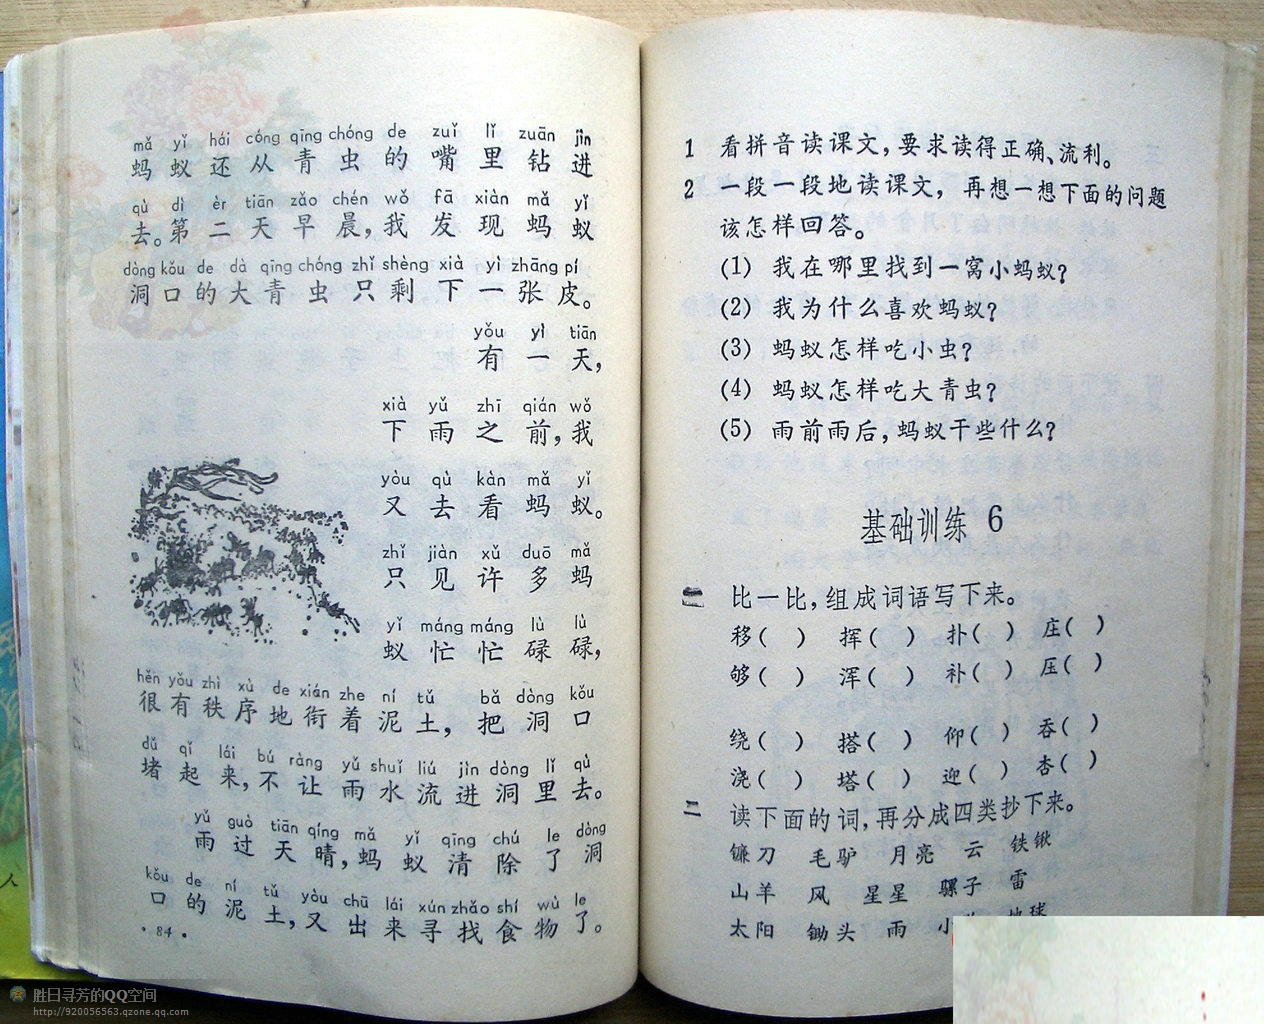 mǎ yǐ hái cóng qīng chóng de zuǐ lǐ zuān jìn
蚂蚁还从青虫的嘴里钻进
qù dì èr tiān zǎo chén wǒ fā xiàn mǎ yǐ
去。第二天早晨,我发现蚂蚁
dòng kǒu de dà qīng chóng zhǐ shèng xià yì zhāng pí
洞口的大青虫只剩下一张皮。
yǒu yì tiān
有一天,
xià yǔ zhī qián wǒ
下雨之前,我
yòu qù kàn mǎ yǐ
又去看蚂蚁。
zhǐ jiàn xǔ duō mǎ
只见许多蚂
yǐ máng máng lù lù
蚁忙忙碌碌,
hěn yǒu zhì xù de xián zhe ní tǔ bǎ dòng kǒu
很有秩序地衔着泥土,把洞口
dǔ qǐ lái bú ràng yǔ shuǐ liú jìn dòng lǐ qù
堵起来,不让雨水流进洞里去。
yǔ guò tiān qíng mǎ yǐ qīng chú le dòng
雨过天晴,蚂蚁清除了洞
kǒu de ní tǔ yòu chū lái xún zhǎo shí wù le
口的泥土,又出来寻找食物了。
·84·
1 看拼音读课文,要求读得正确、流利。
2 一段一段地读课文,再想一想下面的问题
该怎样回答。
(1) 我在哪里找到一窝小蚂蚁?
(2) 我为什么喜欢蚂蚁?
(3) 蚂蚁怎样吃小虫?
(4) 蚂蚁怎样吃大青虫?
(5) 雨前雨后,蚂蚁干些什么?
基础训练 6
一 比一比,组成词语写下来。
移( ) 挥( ) 扑( ) 庄( )
够( ) 浑( ) 补( ) 压( )
绕( ) 搭( ) 仰( ) 吞( )
浇( ) 塔( ) 迎( ) 杏( )
二 读下面的词,再分成四类抄下来。
镰刀 毛驴 月亮 云 铁锹
山羊 风 星星 骡子 雷
太阳 锄头 雨 小 地球
人
胜日寻芳的QQ空间
http://920056563.qzone.qq.com